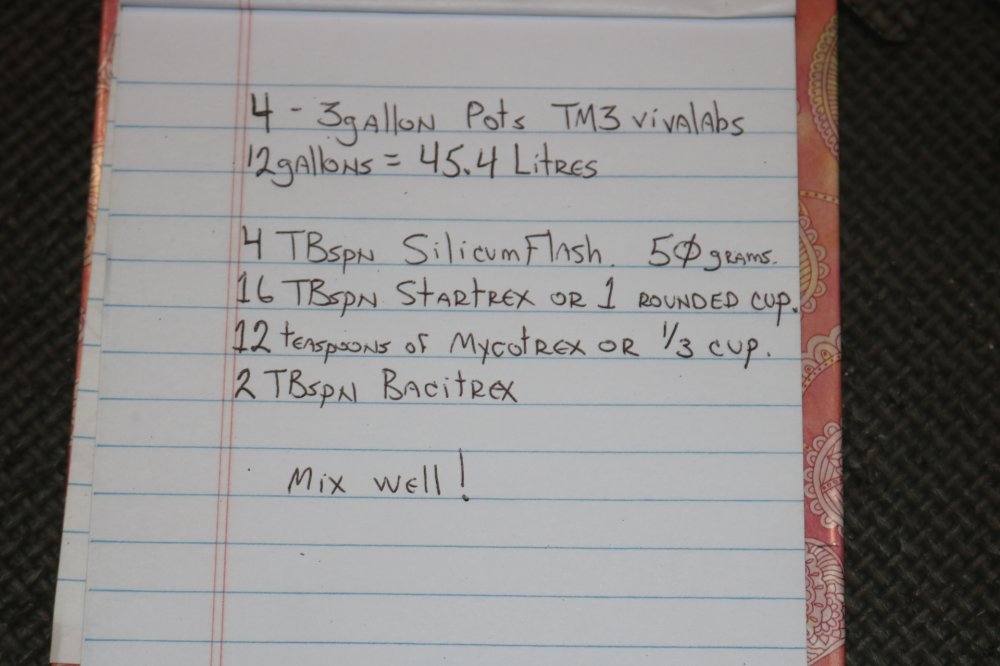 4 - 3gallon Pots TM3 vivalabs
12gallons = 45.4 Litres
4 TBspn Silicum Flash. 50 grams.
16 TBspn Startrex or 1 rounded cup.
12 teaspoons of Mycotrex or 1/3 cup.
2 TBspn Bacitrex
Mix well!